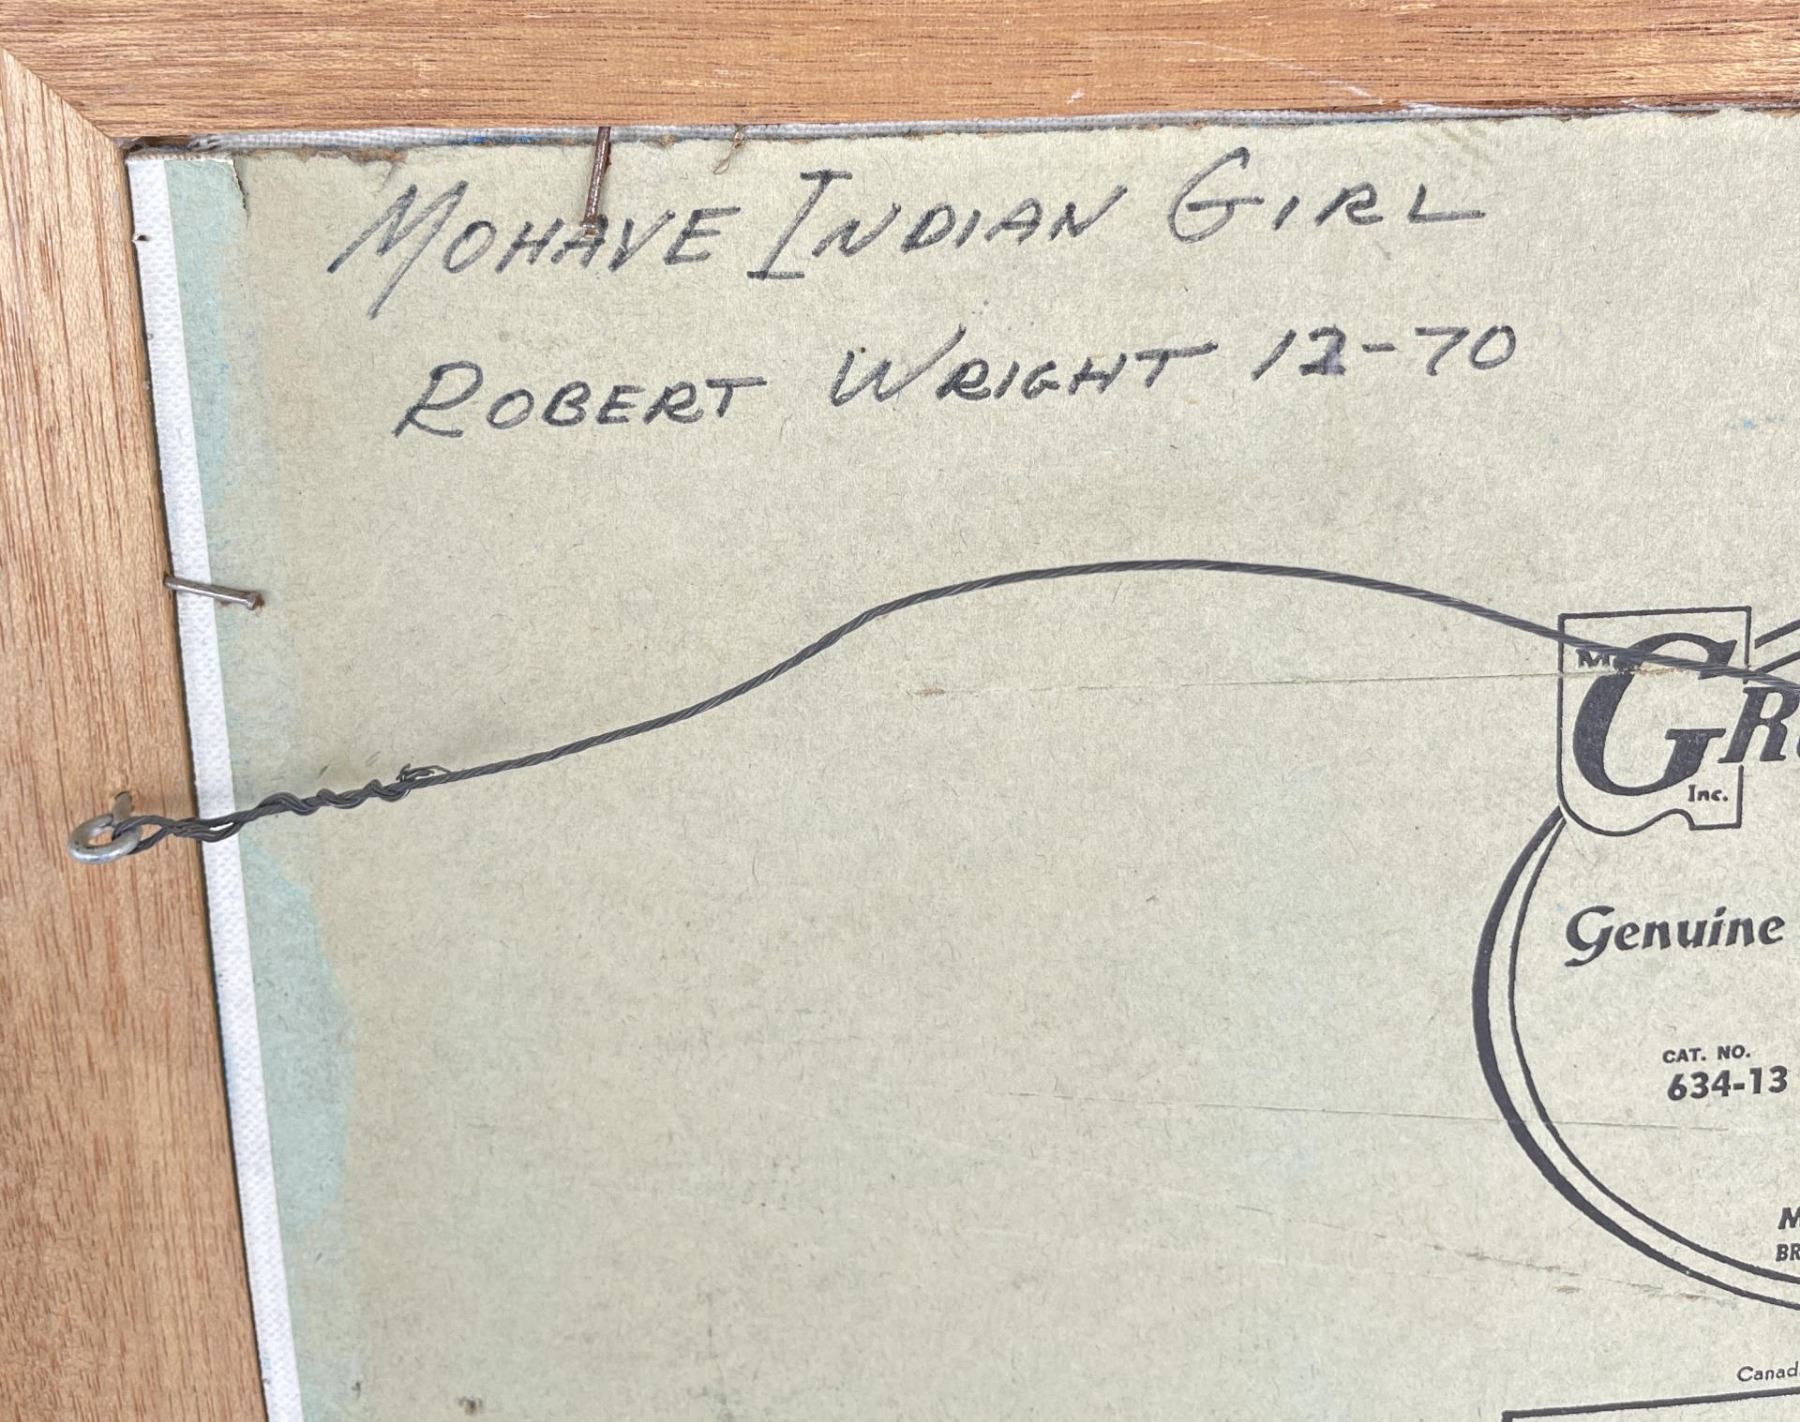 MOHAVE INDIAN GIRL
ROBERT WRIGHT 12-70
M.
GR
Inc.
Genuine
CAT. NO.
634-13
M
BR
Canad